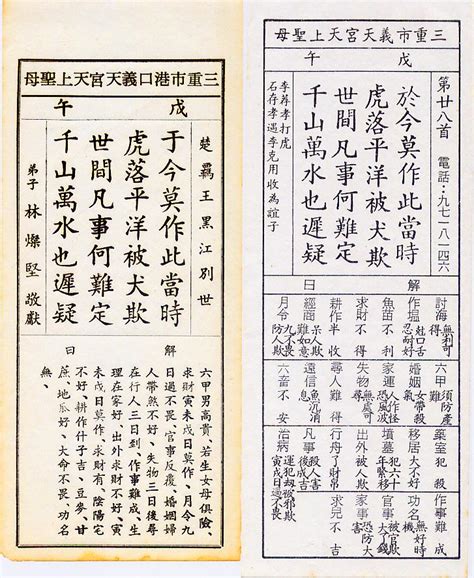 三重市義天宮天上聖母
戊午
第廿八首 電話:九七一八一四六
於今莫作此當時
虎落平洋被犬欺
世間凡事何難定
千山萬水也遲疑
李莽孝打虎
石存孝遇李克用收為誼子
解曰
討海 無利可得
作塭 口舌忍耐好
魚苗 不利
求財 不利
耕作 半收
經商 呆人欺難如意
月令 九不畏防人欺
六甲 須防產難
婚姻 女帶殺
家運 人作怪恐風波
失物 無處可
尋人 難得
遠信 魚沉消
六畜 不安
築室 犯殺
移居 大不好
墳墓 犯六十年
出外 被人欺
行舟 了財
凡事 後成吉
治病 運犯劫被邪欺寅戌日過不畏
作事 難成
功名 無好時機
官事 被官欺恐防大
家事
求兒 不吉
三重市港口義天宮天上聖母
戊午
楚霸王黑江別世
于今莫作此當時
虎落平洋被犬欺
世間凡事何難定
千山萬水也遲疑
弟子 林燦堅敬獻
解曰
六甲男高貴、若生女母俱險、
求財寅未戌日莫作、月令九
日過不畏、官事反覆、婚姻婦
人帶煞不好、失物三日後尋
在行人三日到、作事難成、生
理在家好、出外求財不好、寅
未戌日莫作、求財有、陰陽宅
不好、耕作什子吉、豆麥、甘
蔗、地瓜好、大命不畏、功名
無。